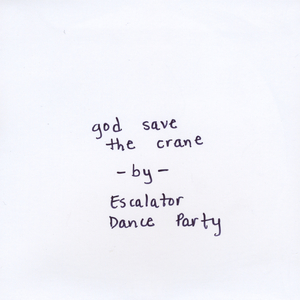 god save
the crane
-by-
Escalator
Dance Party